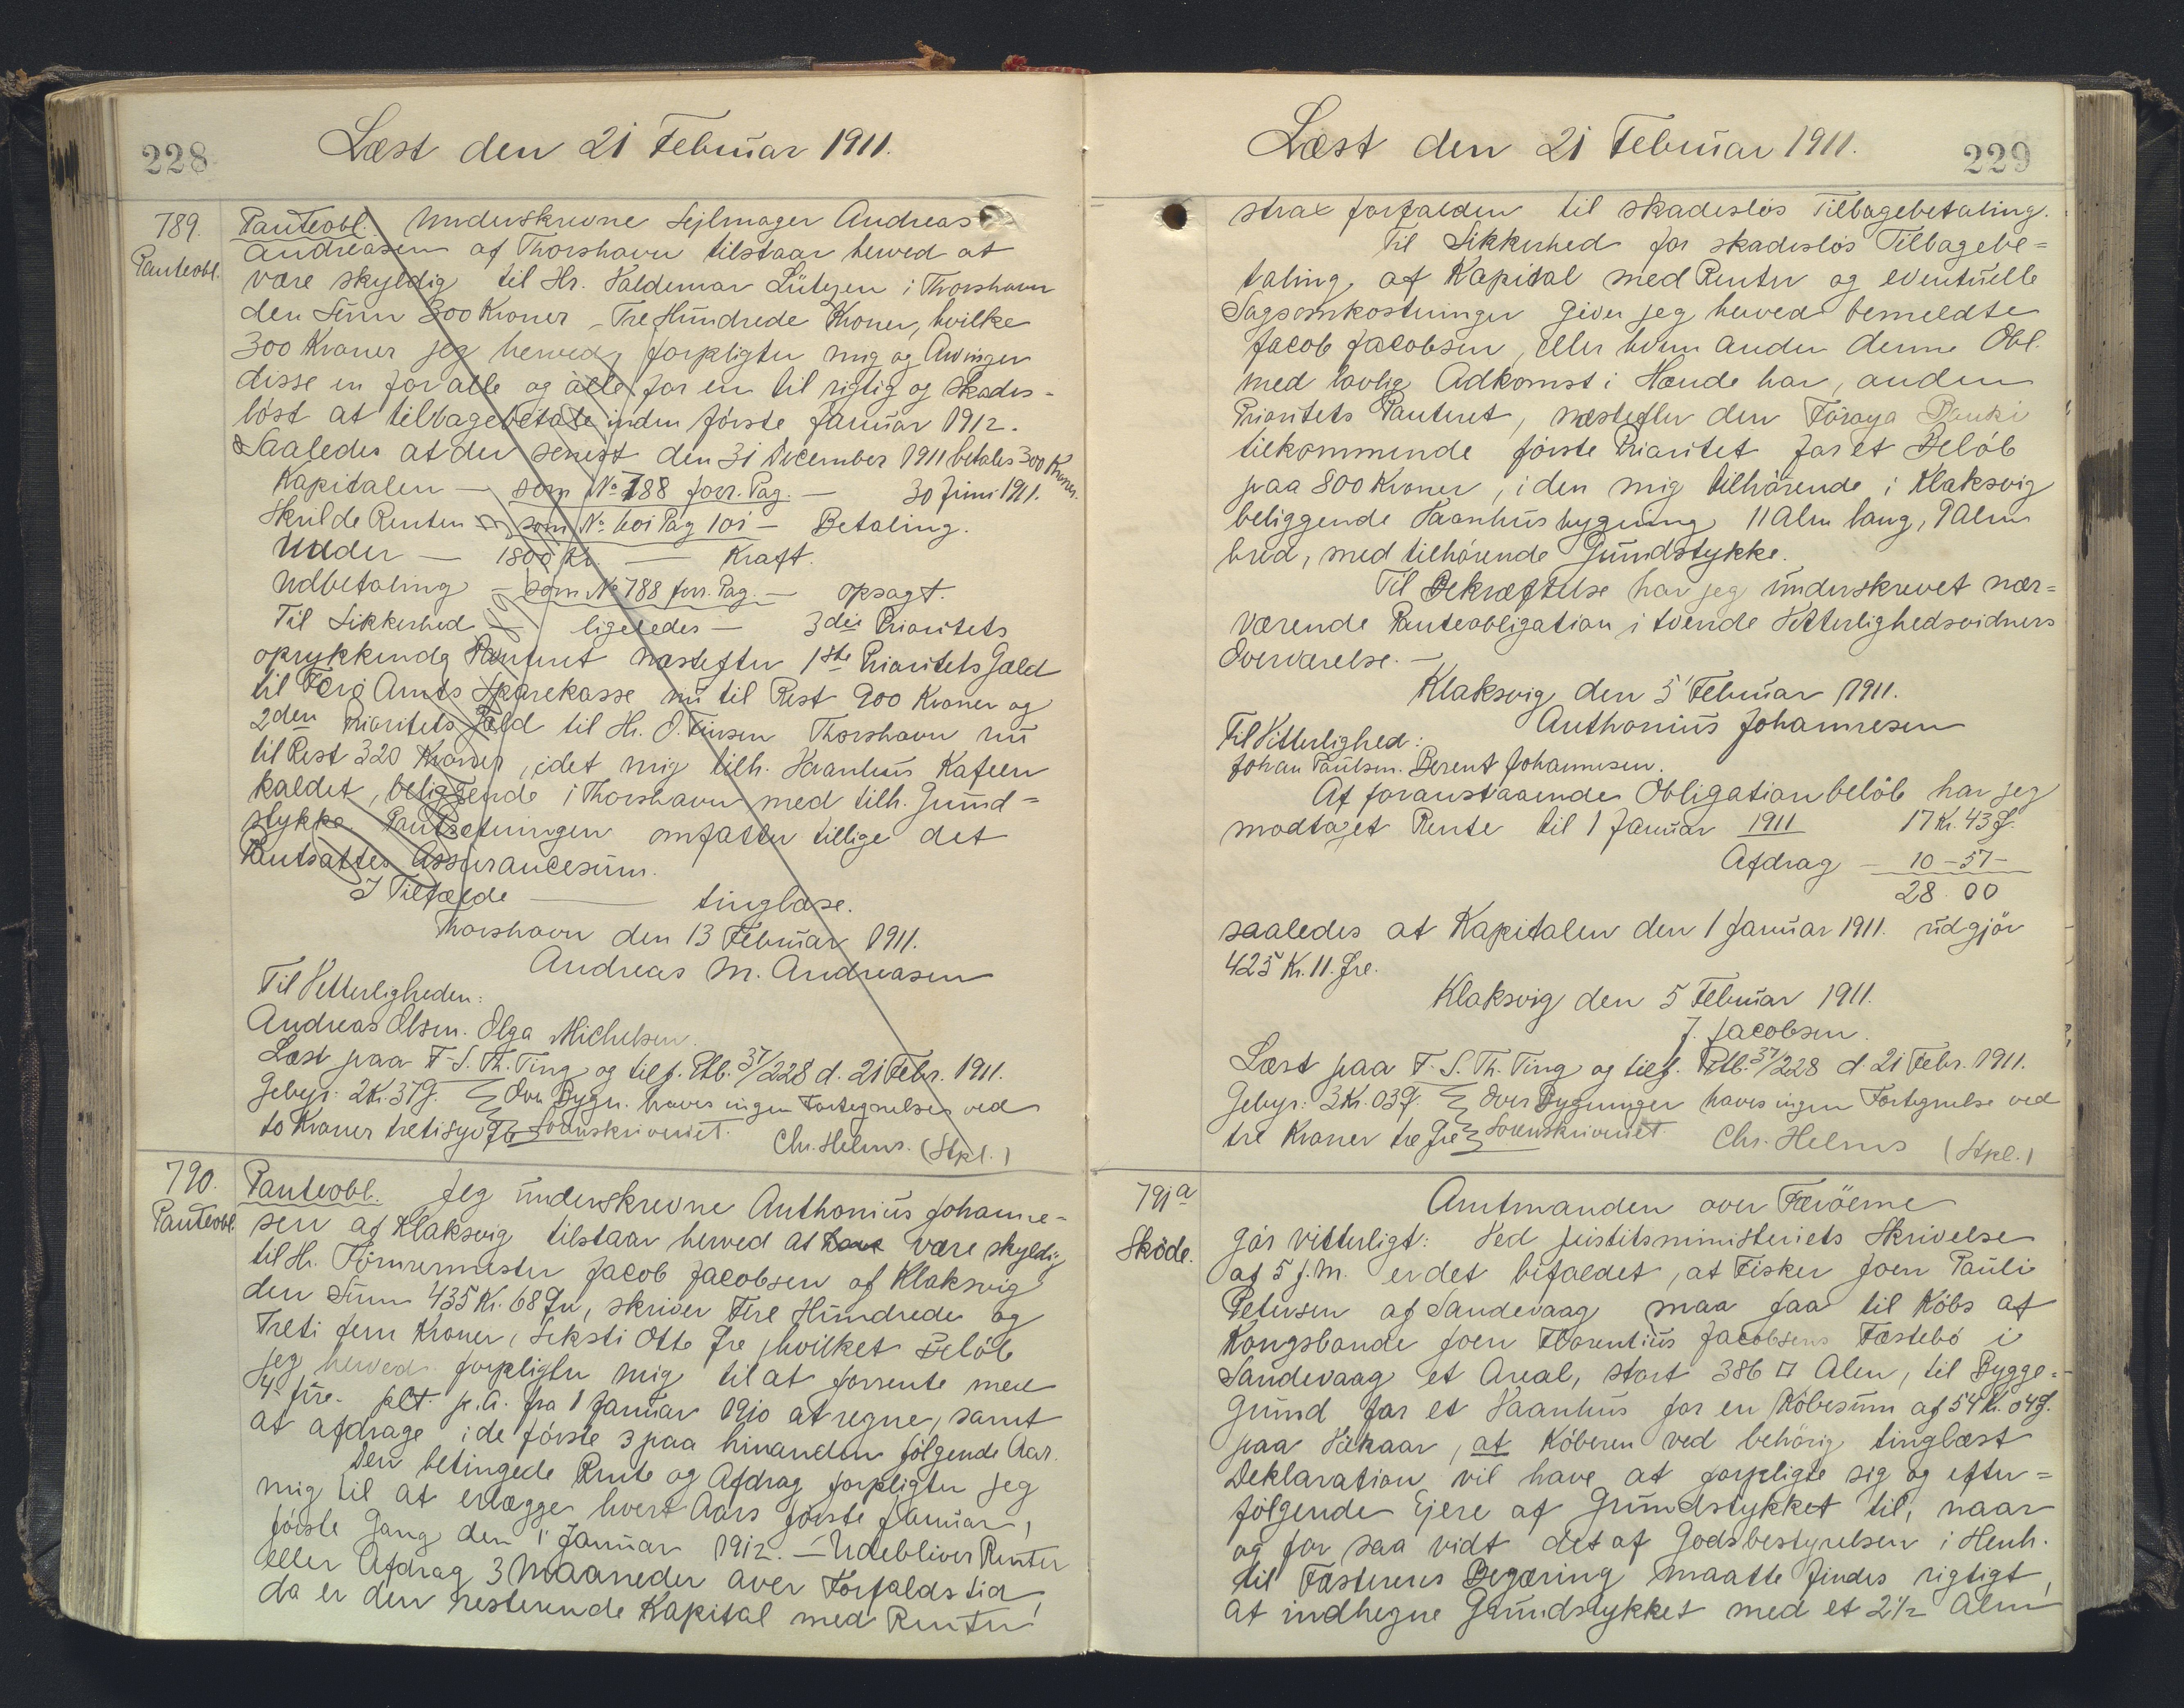 228
Læst den 21 Februar 1911.
789.
Panteobl.
Panteobl. Underskrevne Sejlmager Andreas
Andreasen af Thorshavn tilstaar herved at
være skyldig til Hr. Valdemar Lützen i Thorshavn
den Sum 300 Kroner - Tre Hundrede Kroner, hvilke
300 Kroner jeg herved forpligter mig og Arvinger
disse en for alle og alle for en til rigtig og skades-
löst at tilbagebetale inden förste Januar 1912.
Saaledes at der senest den 31 December 1911 betales 300 Kroner.
Kapitalen - som No 788 forr. Pag. - 30 Juni 1911.
Skulde Renten - som No 601 Pag 101 - Betaling.
Under - 1800 Kr. - Kraft.
Udbetaling - som No 788 forr. Pag. - opsagt.
Til Sikkerhed - ligeledes - 3die Prioritets
oprykkende Panteret næstefter 1ste Prioritets Gæld
til Færö Amts Sparekasse nu til Rest 900 Kroner og
2den Prioritets Gæld til Hr. O. Finsen Thorshavn nu
til Rest 320 Kroner, i det mig tilh. Vaanhus Kafeen
kaldet, beliggende i Thorshavn med tilh. Grund=
stykke. Pantsætningen omfatter tillige det
Pantsattes Assurancesum.
I Tilfælde - tinglæse.
Thorshavn den 13 Februar 1911.
Andreas M. Andreasen
Til Vitterligheden:
Andreas Olsen. Olga Michelsen.
Læst paa F-S. Th. Ting og tilf. Ptb. 37/228 d. 21 Febr. 1911.
Gebyr: 2 Kr. 37 Ø. Over Bygn. haves ingen Fortegnelse ved
to Kroner tretisyv Øre Sorenskriveriet.
Chr. Helms. (Stpl.)
790.
Panteobl.
Panteobl. Jeg underskrevne Anthonius Johanne-
sen af Klaksvig tilstaar herved at have være skyldig
til Hr. Tömrermester Jacob Jacobsen af Klaksvig
den Sum 435 Kr. 68 Øre, skriver Fire Hundrede og
Treti fem Kroner, Seksti Otte Øre, hvilket Belöb
jeg herved forpligter mig til at forrente med
4 - fire - pCt. p. A. fra 1 Januar 1910 at regne, samt
at afdrage i de förste 3 paa hinanden fölgende Aar.
Den betingede Rente og Afdrag forpligter jeg
mig til at erlægge hvert Aars förste Januar,
förste Gang den 1 Januar 1912. - Udebliver Renter
eller Afdrag 3 Maaneder over Forfaldstid,
da er den resterende Kapital med Renter
Læst den 21 Februar 1911.
229
strax forfalden til skadeslös Tilbagebetaling.
Til Sikkerhed for skadeslös Tilbagebe=
taling af Kapital med Renter og eventuelle
Sagsomkostninger giver jeg herved bemeldte
Jacob Jacobsen, eller hvem anden denne Obl.
med lovlig Adkomst i Hænde har, anden
Prioritets Panteret, næstefter den Föroya Banki
tilkommende förste Prioritet for et Belöb
paa 800 Kroner, i den mig tilhörende i Klaksvig
beliggende Vaanhusbygning 11 Alen lang, 9 Alen
bred, med tilhörende Grundstykke.
Til Bekræftelse har jeg underskrevet nær=
værende Panteobligation i tvende Vitterlighedsvidners
Overværelse. -
Klaksvig den 5 Februar 1911.
Anthonius Johannesen
Til Vitterlighed:
Johan Paulsen. Berent Johannesen.
Af foranstaaende Obligationbelöb har jeg
modtaget Rente til 1 Januar 1911 17 Kr. 43 Ø.
Afdrag - 10 - 57 -
28. 00
saaledes at Kapitalen den 1 Januar 1911. udgjör
425 Kr. 11. Øre.
Klaksvig den 5 Februar 1911.
J. Jacobsen.
Læst paa F. S. Th. Ting og tilf. Ptb. 37/228 d. 21 Febr. 1911.
Gebyr: 3 Kr. 03 Ø. Over Bygninger haves ingen Fortegnelse ved
tre Kroner tre Øre Sorenskriveriet. Chr. Helms (Stpl.)
791a
Sköde.
Amtmanden over Færöerne
gör vitterligt: Ved Justitsministeriets Skrivelse
af 5 f. M. er det bifaldet, at Fisker Joen Pauli
Petersen af Sandevaag maa faa til Köbs af
Kongsbonde Joen Florentius Jacobsens Fæstebö i
Sandevaag et Areal, stort 386 □ Alen, til Bygge=
grund for et Vaanhus for en Köbesum af 54 Kr. 04 Ø.
paa Vilkaar, at Köberen ved behörig tinglæst
Deklaration vil have at forpligte sig og efter=
fölgende Ejere af Grundstykket til, naar
og for saa vidt det af Godsbestyrelsen i Henh.
til Fæsterens Begæring maatte findes rigtigt,
at indhegne Grundstykket med et 2 1/2 Alen